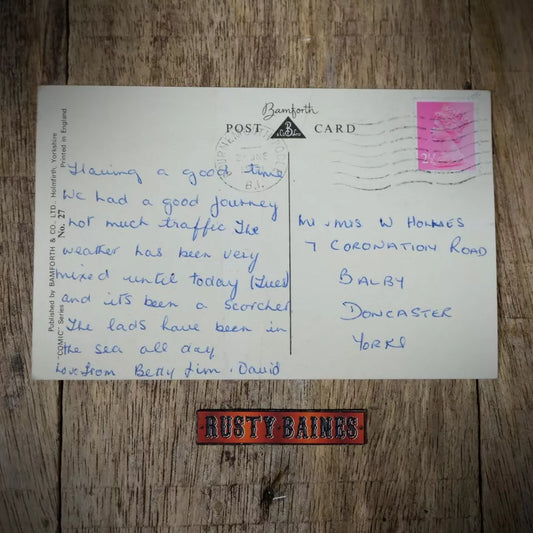 Bamforth
POST CARD
2½
B.I.
Having a good time
We had a good journey
not much traffic The
weather has been very
mixed until today (Tues)
and its been a scorcher
The lads have been in
the sea all day
Love from Betty Jim . David
Mr & Mrs W HOLMES
7 CORONATION ROAD
BALBY
DONCASTER
YORKS
Published by BAMFORTH & CO., LTD. Holmfirth, Yorkshire
"COMIC" Series No. 27 Printed in England
RUSTY BAINES